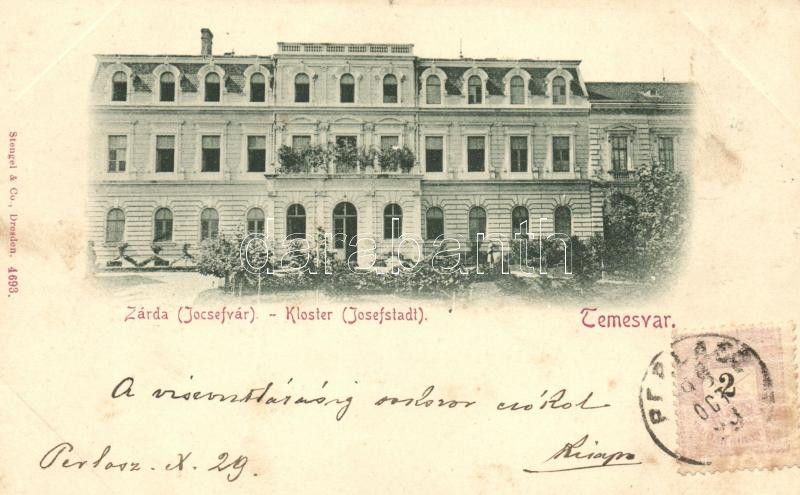 Stengel & Co., Dresden. 4693.
darabanth
Zárda (Jocsefvár). - Kloster (Josefstadt).
Temesvar.
PERLASZ
2
A viszontlátásig sokszor csókol
Perlasz. X. 29.